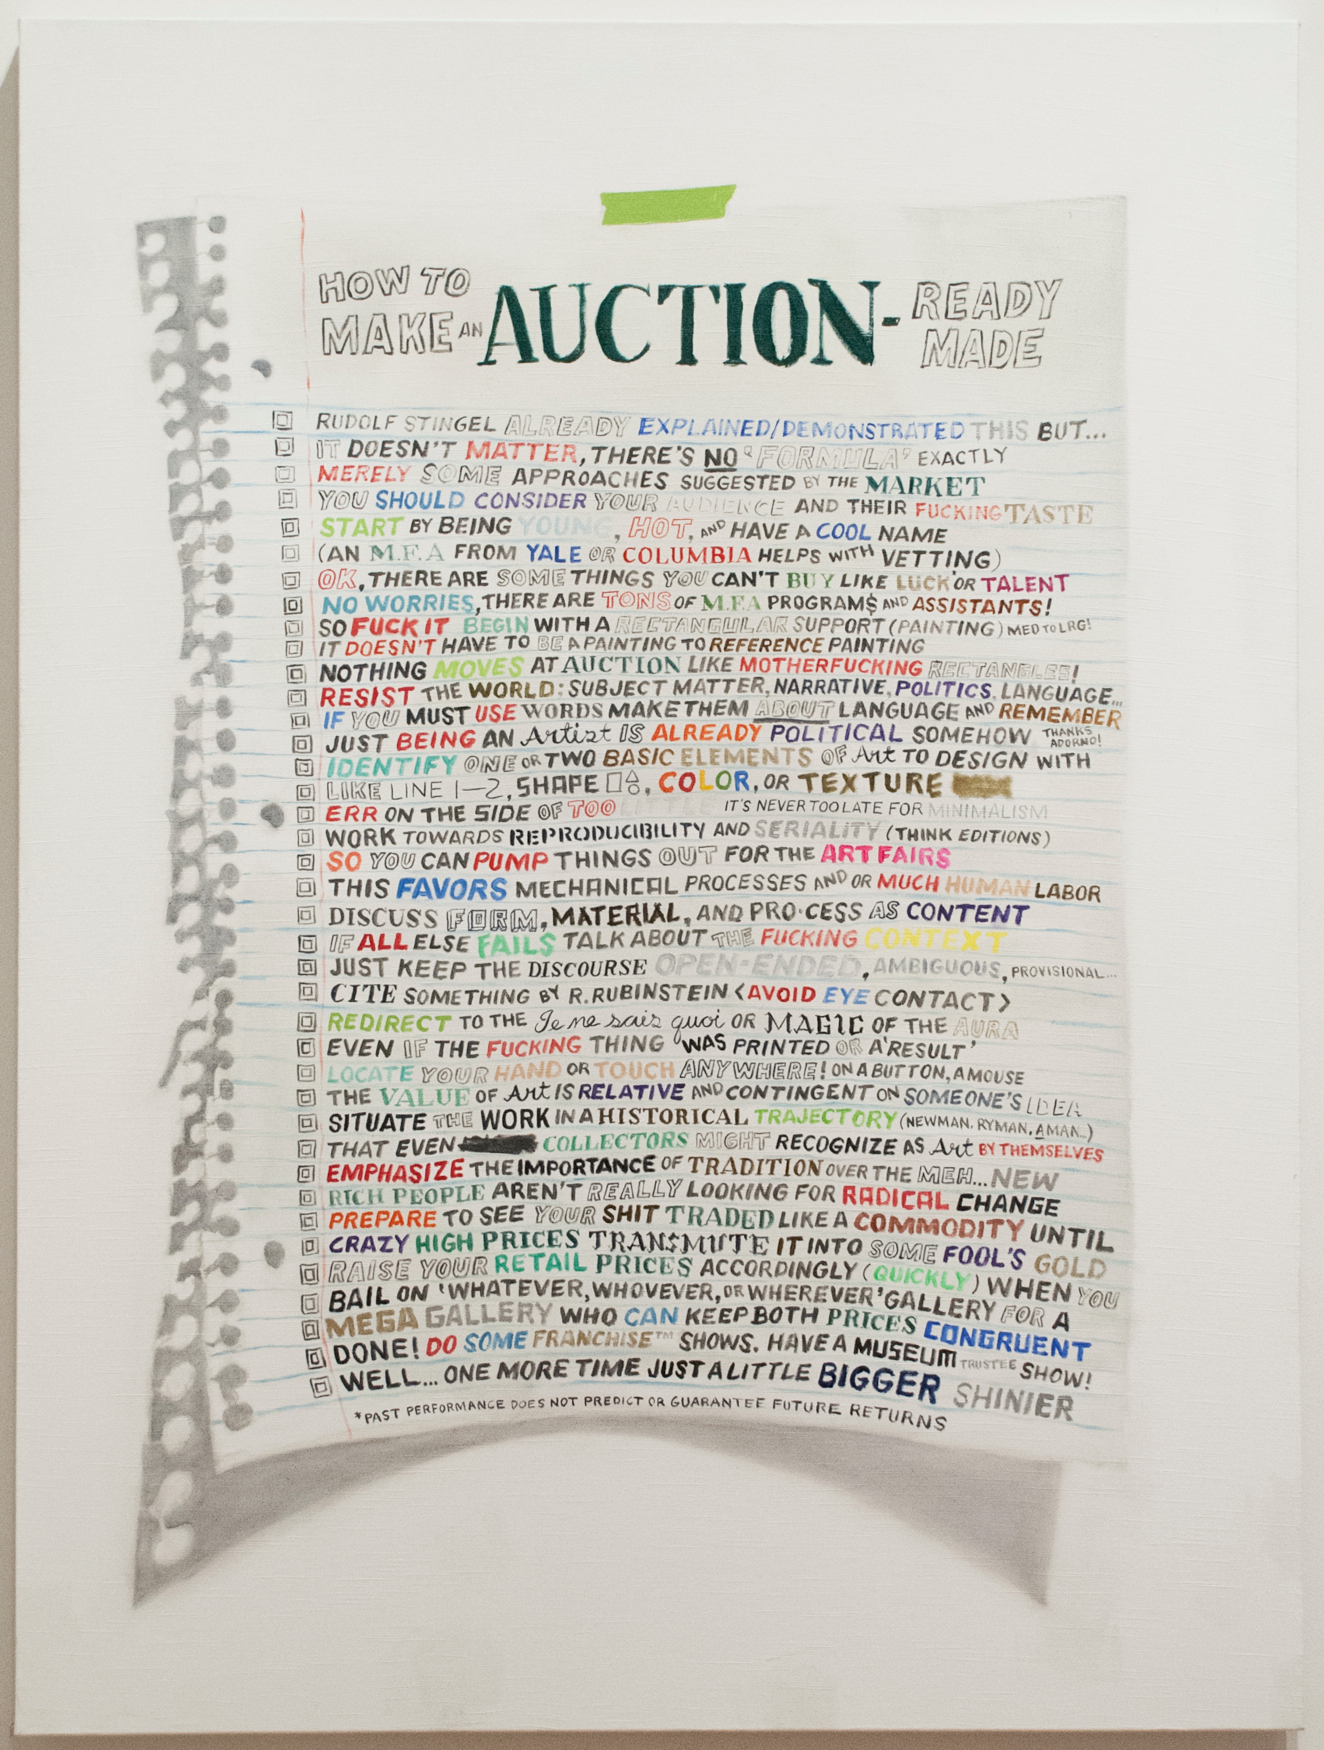 HOW TO
MAKE AN AUCTION- READY
MADE
RUDOLF STINGEL ALREADY EXPLAINED/DEMONSTRATED THIS BUT...
IT DOESN'T MATTER, THERE'S NO 'FORMULA' EXACTLY
MERELY SOME APPROACHES SUGGESTED BY THE MARKET
YOU SHOULD CONSIDER YOUR AUDIENCE AND THEIR FUCKING TASTE
START BY BEING YOUNG, HOT, AND HAVE A COOL NAME
(AN M.F.A FROM YALE OR COLUMBIA HELPS WITH VETTING)
OK, THERE ARE SOME THINGS YOU CAN'T BUY LIKE LUCK OR TALENT
NO WORRIES, THERE ARE TONS OF M.F.A PROGRAM$ AND ASSISTANTS!
SO FUCK IT BEGIN WITH A RECTANGULAR SUPPORT (PAINTING) MED TO LRG!
IT DOESN'T HAVE TO BE A PAINTING TO REFERENCE PAINTING
NOTHING MOVES AT AUCTION LIKE MOTHERFUCKING RECTANGLES!
RESIST THE WORLD: SUBJECT MATTER, NARRATIVE, POLITICS, LANGUAGE...
IF YOU MUST USE WORDS MAKE THEM ABOUT LANGUAGE AND REMEMBER
JUST BEING AN Artist IS ALREADY POLITICAL SOMEHOW THANKS ADORNO!
IDENTIFY ONE OR TWO BASIC ELEMENTS OF Art TO DESIGN WITH
LIKE LINE 1—2, SHAPE □△○, COLOR, OR TEXTURE
ERR ON THE SIDE OF TOO LITTLE IT'S NEVER TOO LATE FOR MINIMALISM
WORK TOWARDS REPRODUCIBILITY AND SERIALITY (THINK EDITIONS)
SO YOU CAN PUMP THINGS OUT FOR THE ART FAIRS
THIS FAVORS MECHANICAL PROCESSES AND OR MUCH HUMAN LABOR
DISCUSS FORM, MATERIAL, AND PRO·CESS AS CONTENT
IF ALL ELSE FAILS TALK ABOUT THE FUCKING CONTEXT
JUST KEEP THE DISCOURSE OPEN-ENDED, AMBIGUOUS, PROVISIONAL...
CITE SOMETHING BY R. RUBINSTEIN <AVOID EYE CONTACT>
REDIRECT TO THE Je ne sais quoi OR MAGIC OF THE AURA
EVEN IF THE FUCKING THING 'WAS PRINTED OR A 'RESULT'
LOCATE YOUR HAND OR TOUCH ANYWHERE! ON A BUTTON, A MOUSE
THE VALUE OF Art IS RELATIVE AND CONTINGENT ON SOMEONE'S IDEA
SITUATE THE WORK IN A HISTORICAL TRAJECTORY (NEWMAN, RYMAN, AMAN...)
THAT EVEN COLLECTORS MIGHT RECOGNIZE AS Art BY THEMSELVES
EMPHASIZE THE IMPORTANCE OF TRADITION OVER THE MEH... NEW
RICH PEOPLE AREN'T REALLY LOOKING FOR RADICAL CHANGE
PREPARE TO SEE YOUR SHIT TRADED LIKE A COMMODITY UNTIL
CRAZY HIGH PRICES TRAN$MUTE IT INTO SOME FOOL'S GOLD
RAISE YOUR RETAIL PRICES ACCORDINGLY (QUICKLY) WHEN YOU
BAIL ON 'WHATEVER, WHOVEVER, OR WHEREVER' GALLERY FOR A
MEGA GALLERY WHO CAN KEEP BOTH PRICES CONGRUENT
DONE! DO SOME FRANCHISE™ SHOWS. HAVE A MUSEUM TRUSTEE SHOW!
WELL... ONE MORE TIME JUST A LITTLE BIGGER SHINIER
*PAST PERFORMANCE DOES NOT PREDICT OR GUARANTEE FUTURE RETURNS